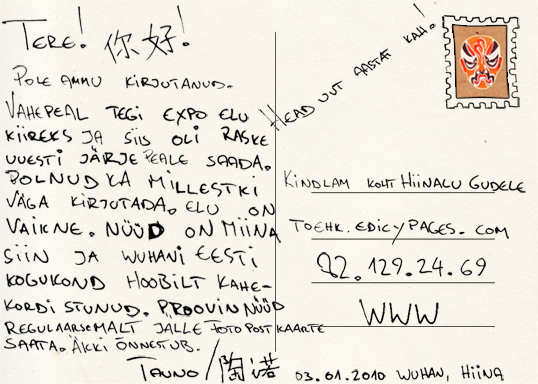 TERE! 你好!
POLE AMMU KIRJUTANUD.
VAHEPEAL TEGI EXPO ELU
KIIREKS JA SIIS OLI RASKE
UUESTI JÄRJE PEALE SAADA.
POLNUD KA MILLESTKI
VÄGA KIRJUTADA. ELU ON
VAIKNE. NÜÜD ON MIINA
SIIN JA WUHANI EESTI
KOGUKOND HOOBILT KAHE-
KORDISTUNUD. PROOVIN NÜÜD
REGULAARSEMALT JÄLLE FOTOPOSTKAARTE
SAATA. ÄKKI ÕNNETUB.
TAUNO/陶诺
HEAD UUT AASTAT KAH!
KINDLAM KOHT HIINALUGUDELE
TOEHK.EDICYPAGES.COM
82.129.24.69
WWW
03.01.2010 WUHAN, HIINA